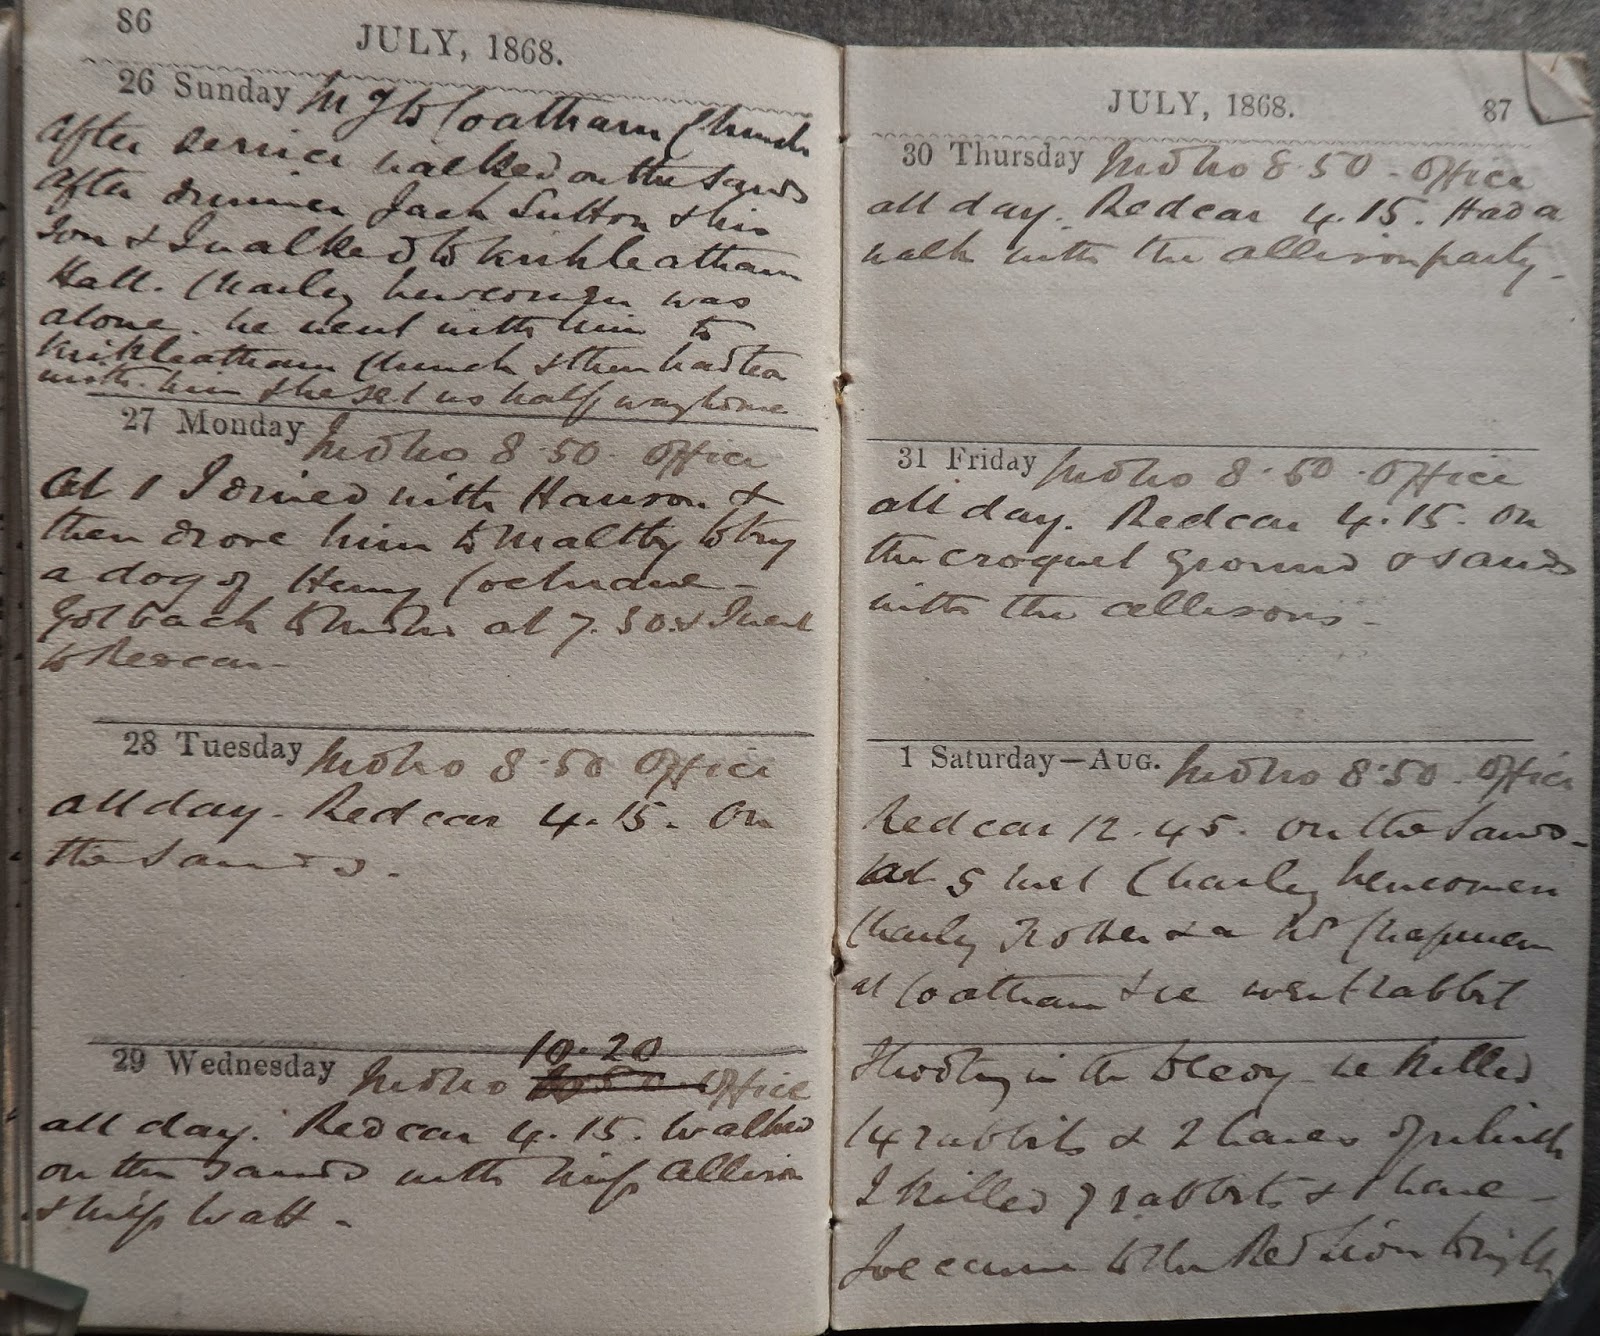 86
JULY, 1868.
26 Sunday Mg to Coatham Church
After service walked on the sands
After dinner Jack Sutton & his
Son & I walked to Kirkleatham
Hall. Charley Newcomen was
alone. we went with him to
Kirkleatham Church & then had tea
with him & he set us half way home
27 Monday Mdbro 8.50. Office
At 1 I dined with Hanson &
then drove him to Maltby to try
a dog of Henry Cochrane -
Got back to Mdbro at 7.30. & I went
to Redcar -
28 Tuesday Mdbro 8.50 Office
all day. Redcar 4.15. On
the Sands.
10.20
29 Wednesday Mdbro Office
all day. Redcar 4.15. Walked
on the sands with Miss Allison
& Miss Watt -
JULY, 1868.
87
30 Thursday Mdbro 8.50 - Office
all day. Redcar 4.15. Had a
walk with the Allison party -
31 Friday Mdbro 8.50 - Office
all day. Redcar 4.15. On
the croquet ground & sands
with the Allisons -
1 Saturday—AUG. Mdbro 8.50 - Office
Redcar 12.45. On the Sands -
at 5 met Charley Newcomen
Charley Trotter & a Mr Chapman
at Coatham & we went rabbit
Shooting in the we killed
14 rabbits & 2 hares of which
I killed 7 rabbits & 1 hare -
Joe came to the Red Lion tonight